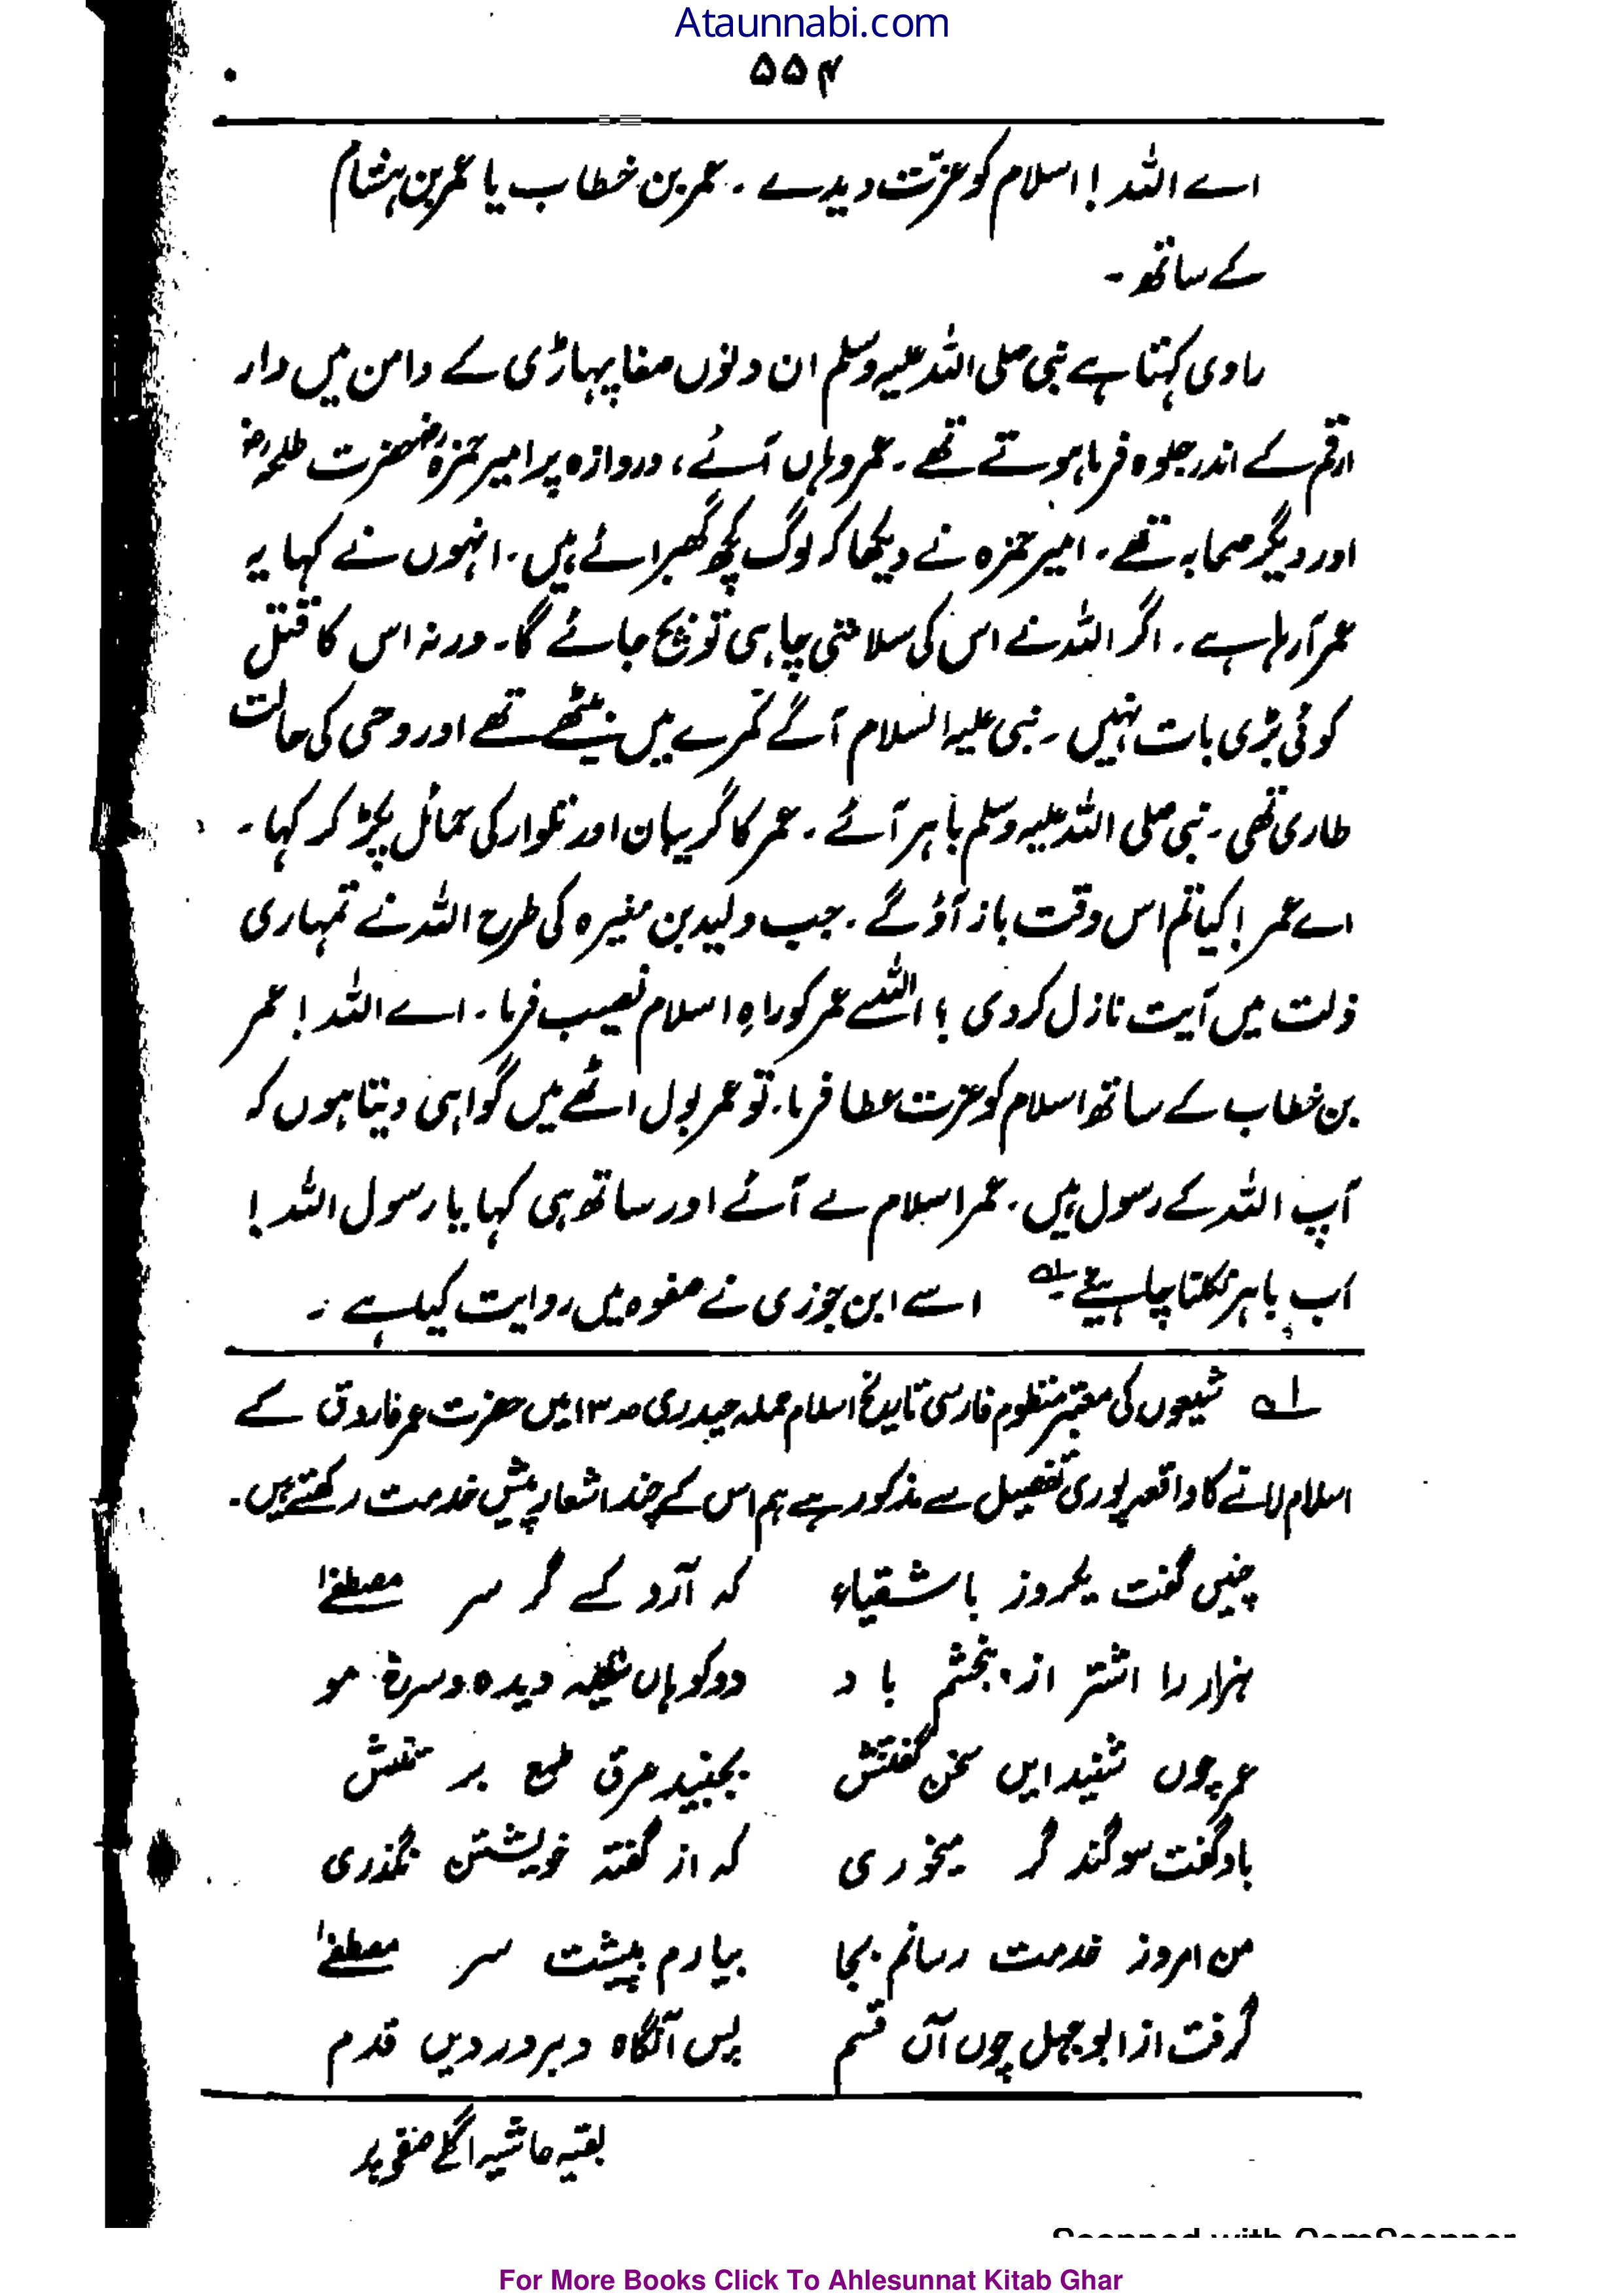 Ataunnabi.com
۵۵۴
اے اللہ! اسلام کو عزت دیدے ۔ عمر بن خطاب یا عمر بن ہشام
کے ساتھ ۔
راوی کہتا ہے نبی صلی اللہ علیہ وسلم ان دنوں صفا پہاڑی کے دامن میں دار
ارقم کے اندر جلوہ فرما ہوتے تھے ۔ عمر وہاں آئے، دروازہ پر امیر حمزہؓ حضرت طلحہؓ
اور دیگر صحابہ تھے ۔ امیر حمزہ نے دیکھا کہ لوگ کچھ گھبرائے ہیں ۔ انہوں نے کہا یہ
عمر آرہا ہے ۔ اگر اللہ نے اس کی سلامتی چاہی تو بچ جائے گا ۔ ورنہ اس کا قتل
کوئی بڑی بات نہیں ۔ نبی علیہ السلام آگے کمرے میں بیٹھے تھے اور وحی کی حالت
طاری تھی ۔ نبی صلی اللہ علیہ وسلم باہر آئے ۔ عمر کا گریبان اور تلوار کی حمائل پکڑ کر کہا ۔
اے عمر! کیا تم اس وقت باز آؤ گے ۔ جب ولید بن مغیرہ کی طرح اللہ نے تمہاری
ذلت میں آیت نازل کر دی ؟ اے اللہ عمر کو راہِ اسلام نصیب فرما ۔ اے اللہ! عمر
بن خطاب کے ساتھ اسلام کو عزت عطا فرما ۔ تو عمر بول اٹھے میں گواہی دیتا ہوں کہ
آپ اللہ کے رسول ہیں ۔ عمر اسلام لے آئے اور ساتھ ہی کہا یا رسول اللہ!
اب باہر نکلنا چاہیئے لہ اسے ابن جوزی نے صفوہ میں روایت کیا ہے ۔
لہ شیعوں کی معتبر منظوم فارسی تاریخ اسلام حملہ حیدری صـ۱۳ میں حضرت عمر فاروق کے
اسلام لانے کا واقعہ پوری تفصیل سے مذکور ہے ہم اس کے چند اشعار پیش خدمت رکھتے ہیں ۔
چنیں گفت یکروز با اشقیاء کہ آرد کسے گر سر مصطفےٰ
ہزار اشتر از بخشم باد دو کوہاں دیدہ و سرخ مو
عمر چوں شنید ایں سخن گفتنش بجنبید عرق طمع بر تنش
باو گفت سوگند گر میخوری کہ از گفتۂ خویشتن نگذری
من امروز خدمت رسانم بجا بیارم بپیشت سر مصطفےٰ
گرفت از ابو جہل چوں آں قسم پس آنگاہ در دیں قدم
بقیہ حاشیہ اگلے صفحہ پر
For More Books Click To Ahlesunnat Kitab Ghar